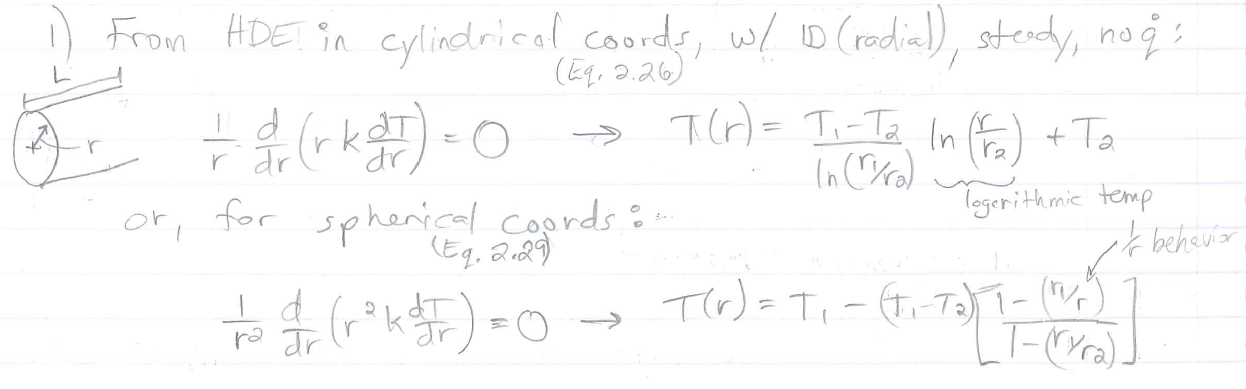 1) From HDE in cylindrical coords, w/ 1D (radial), steady, no q̇:
(Eq. 2.26)
L
r
1/r d/dr (r k dT/dr) = 0 → T(r) = (T₁-T₂)/ln(r₁/r₂) ln(r/r₂) + T₂
logerithmic temp
or, for spherical coords:
(Eq. 2.29)
1/r behavior
1/r² d/dr (r² k dT/dr) = 0 → T(r) = T₁ - (T₁-T₂) [(1-(r₁/r))/(1-(r₁/r₂))]